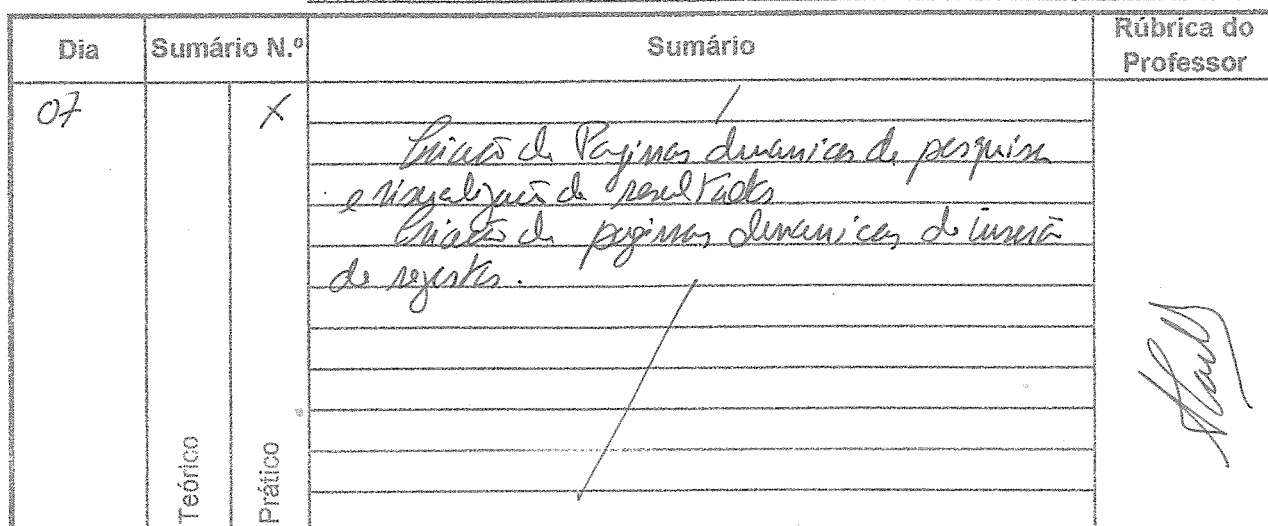 Dia Sumário N.º Sumário Rúbrica do
Professor
07 X
Criação de Paginas dinamicas de pesquisa
e visualização de resultados
Criação de paginas dinamicas de inserção
de registos.
Teórico
Prático